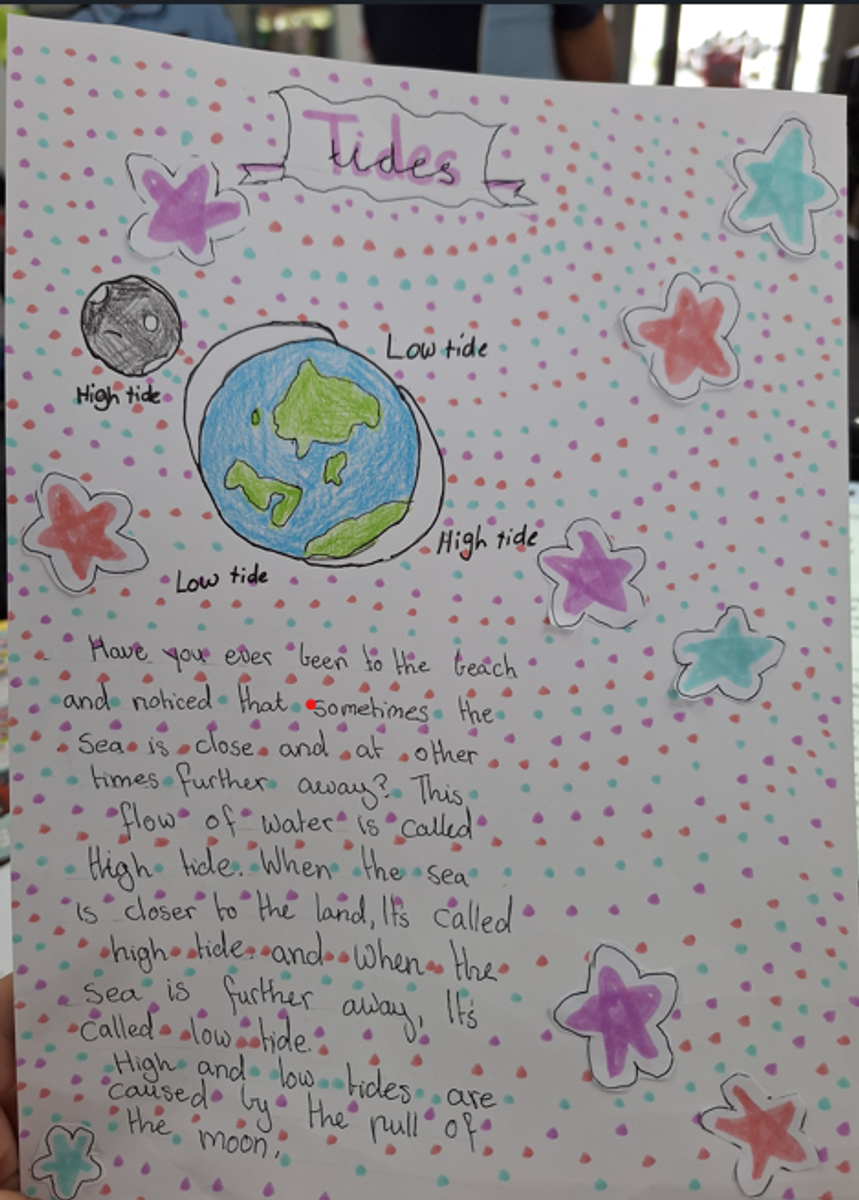 Tides
tides
Low tide
High tide
High tide
Low tide
Have you ever been to the beach
and noticed that sometimes the
Sea is close and at other
times further away? This
flow of water is called
High tide. When the sea
is closer to the land, Its called
high tide. and When the
Sea is further away, Its
called low tide.
High and low tides are
caused by the pull of
the moon.